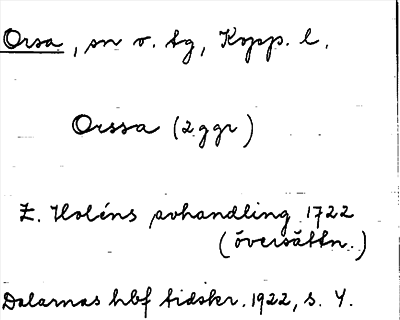 Orsa, sn o. tg, Kopp. l.
Orssa (2 ggr)
Z. Holéns avhandling 1722
(översättn.)
Dalarnas hbf tidskr. 1922, s. 4.